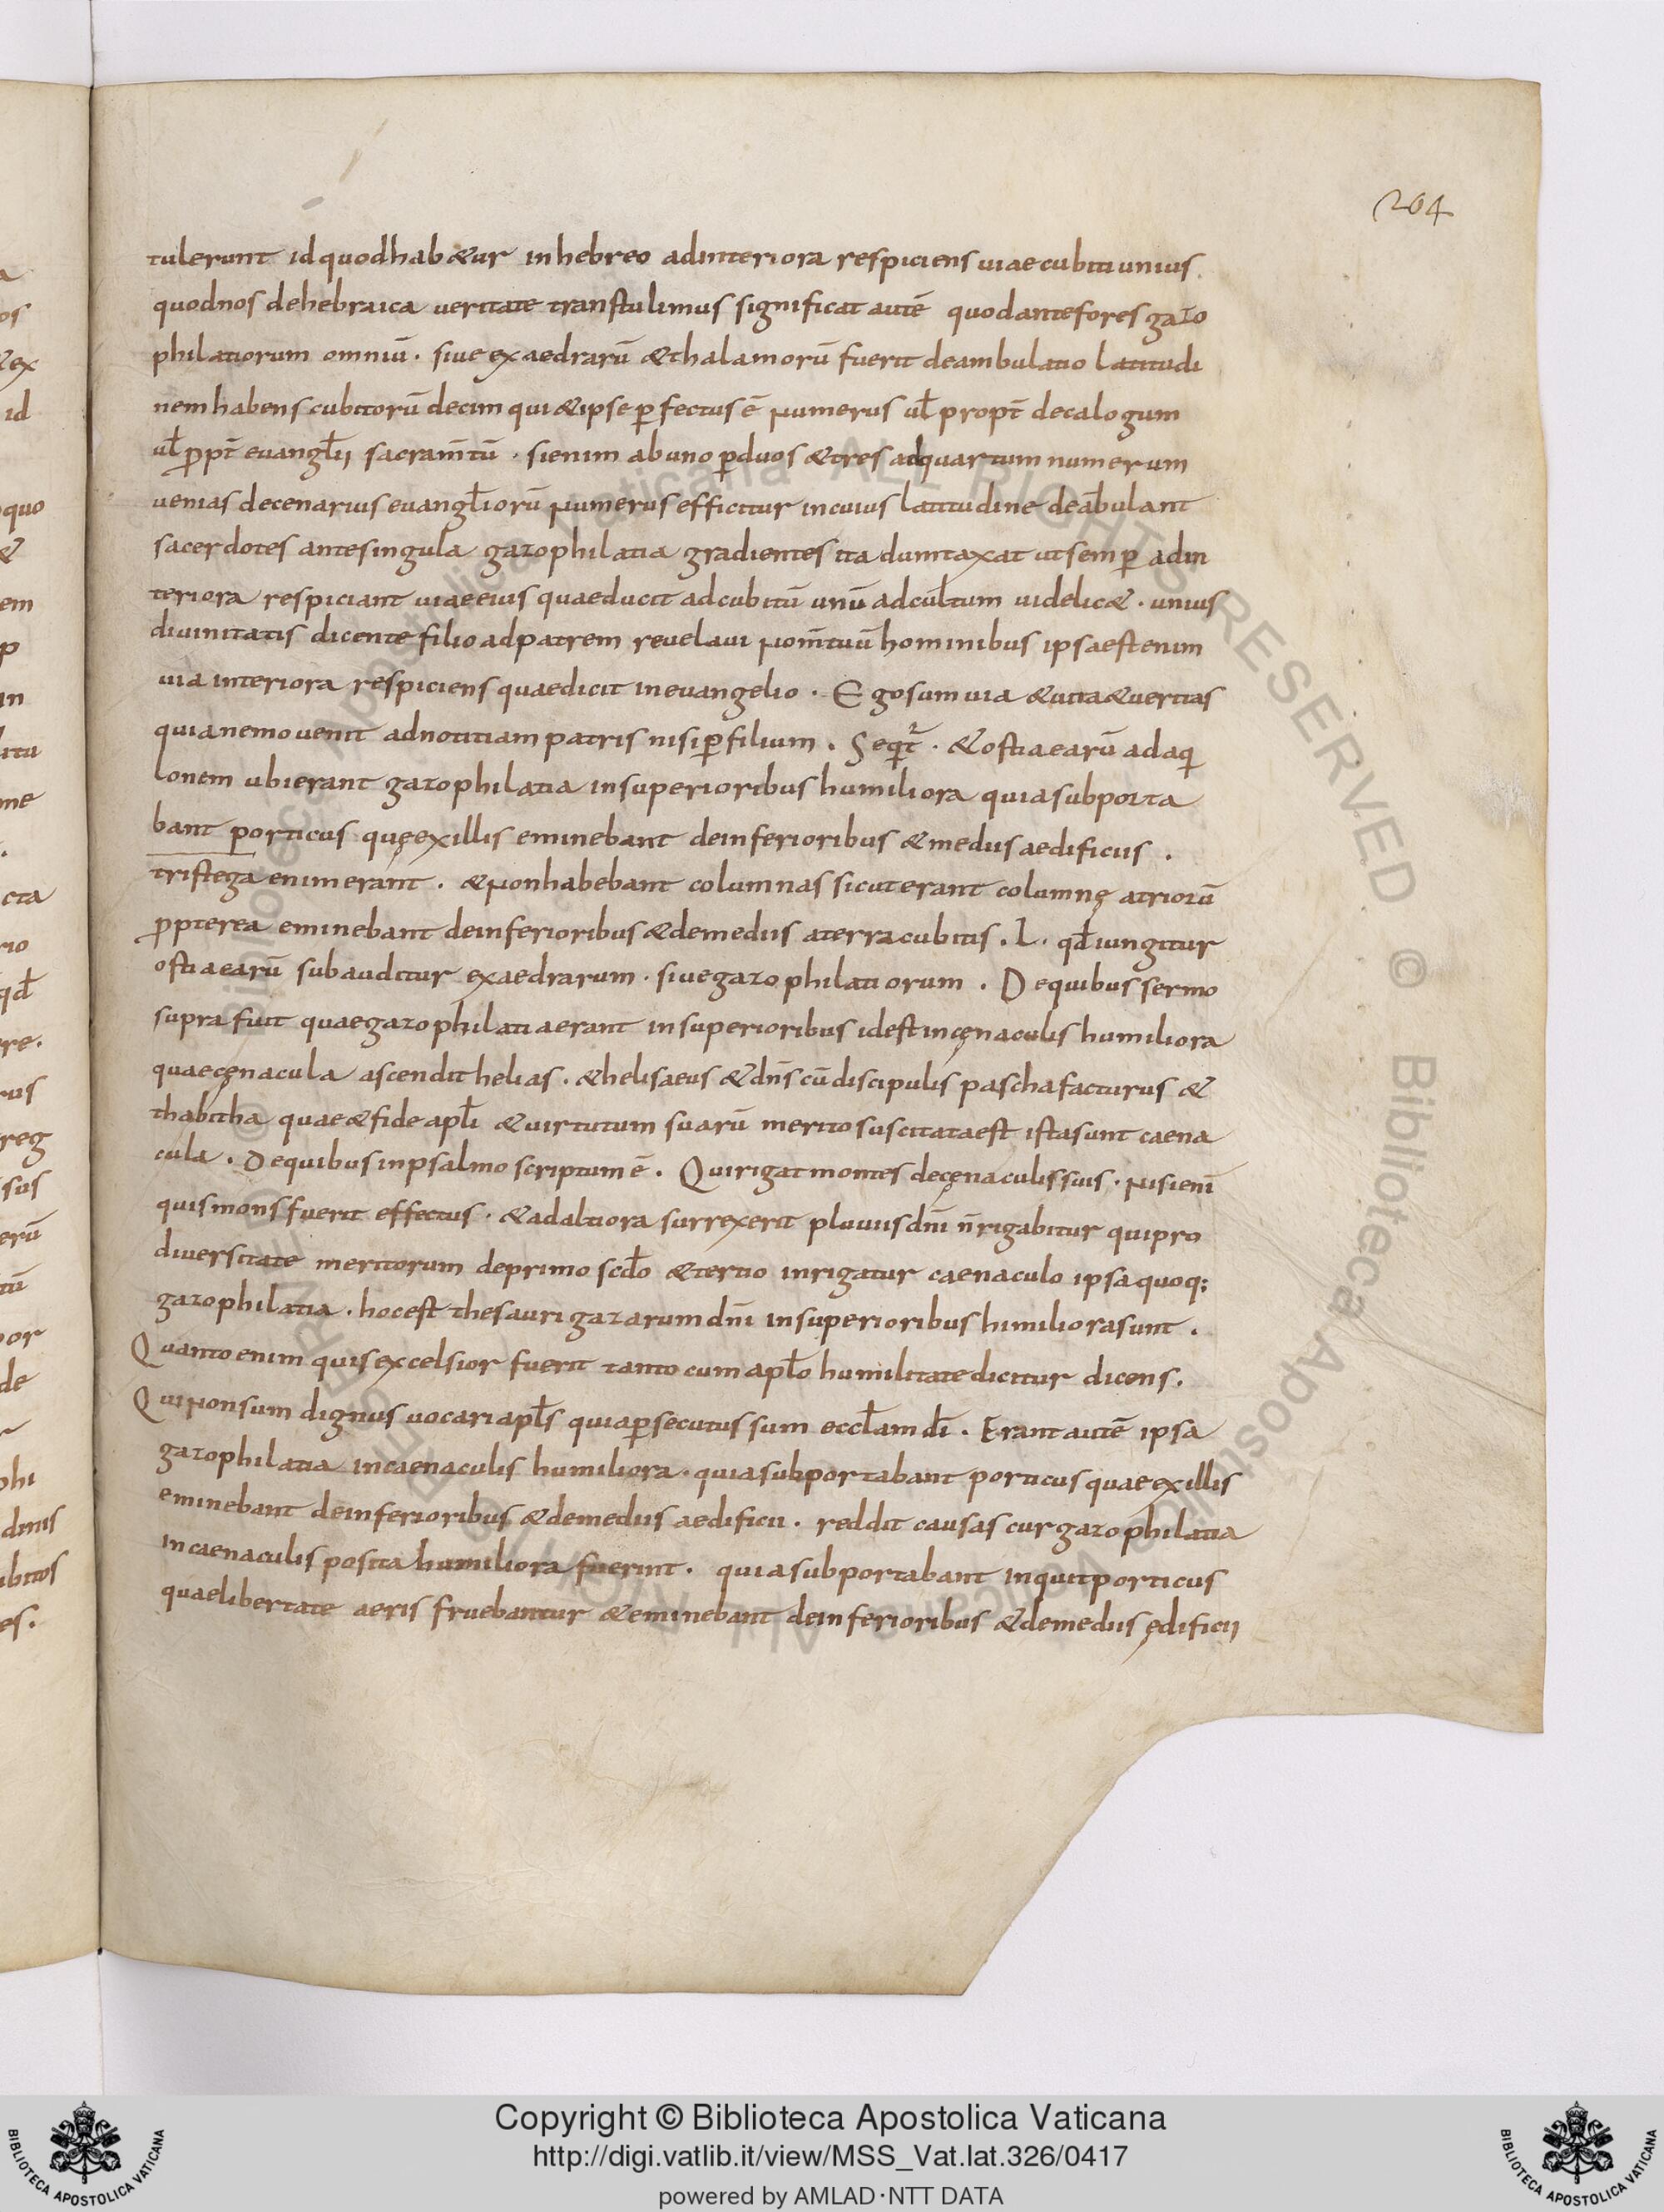 204
tulerunt id quod hab&ur in hebreo ad interiora respiciens uiae cubiti unius.
quod nos de hebraica ueritate transtulimus significat autē quod ante fores gazo
philatiorum omniū· siue exaedrarū & thalamorū fuerit deambulatio latitudi
nem habens cubitorū decim qui & ipse ꝑfectus ē numerus ul̄ propt̄ decalogum
ul̄ ꝓpt̄ euangl̄ii sacram̄tū· si enim ab uno ꝑ duos & tres ad quartum numerum
uenias decenarius euangl̄iorū numerus efficitur in cuius latitudine deābulant
sacerdotes ante singula gazophilatia gradientes ita dumtaxat ut semꝑ ad in
teriora respiciant uiae eius quae ducit ad cubitū unū ad cultum uidelic&· unius
diuinitatis dicente filio ad patrem reuelaui nom̄ tuū hominibus ipsa est enim
uia interiora respiciens quae dicit in euangelio· Ego sum uia & uita & ueritas
quia nemo uenit ad notitiam patris nisi ꝑ filium. Seqt̄r· & ostia earū ad aqi
lonem ubi erant gazophilatia in superioribus humiliora quia subporta
bant porticus quę ex illis eminebant de inferioribus & mediis aedificiis.
tristega enim erant. & non habebant columnas sicut erant columnę atriorū
ꝓpterea eminebant de inferioribus & de mediis a terra cubitis. L. qd̄ iungitur
ostia earū subauditur exaedrarum· siue gazophilatiorum. De quibus sermo
supra fuit quae gazophilatia erant in superioribus id est in cęnaculis humiliora
quae cęnacula ascendit helias. & helisaeus & dn̄s cū discipulis pascha facturus &
thabitha quae & fide apl̄i & uirtutum suarū merito suscitata est ista sunt caena
cula. De quibus in psalmo scriptum ē. Qui rigat montes de cęnaculis suis· nisi enī
quis mons fuerit effectus· & ad altiora surrexerit pluuiis dn̄i n̄ rigabitur qui pro
diuersitate meritorum de primo scd̄o & tertio inrigatur caenaculo ipsa quoq;
gazophilatia· hoc est thesauri gazarum dn̄i in superioribus himiliora sunt.
Quanto enim quis excelsior fuerit tanto cum apl̄o humilitate dicitur dicens.
Qui non sum dignus uocari apl̄s quia ꝑsecutus sum eccl̄am dī. Erant autē ipsa
gazophilatia in caenaculis humiliora· quia subportabant porticus quae ex illis
eminebant de inferioribus & de mediis aedificii. reddit causas cur gazophilatia
in caenaculis posita humiliora fuerint. quia subportabant inquit porticus
quae libertate aeris fruebantur & eminebant de inferioribus & de mediis ędificii
Copyright © Biblioteca Apostolica Vaticana
http://digi.vatlib.it/view/MSS_Vat.lat.326/0417
powered by AMLAD·NTT DATA
BIBLIOTECA APOSTOLICA VATICANA
BIBLIOTECA APOSTOLICA VATICANA